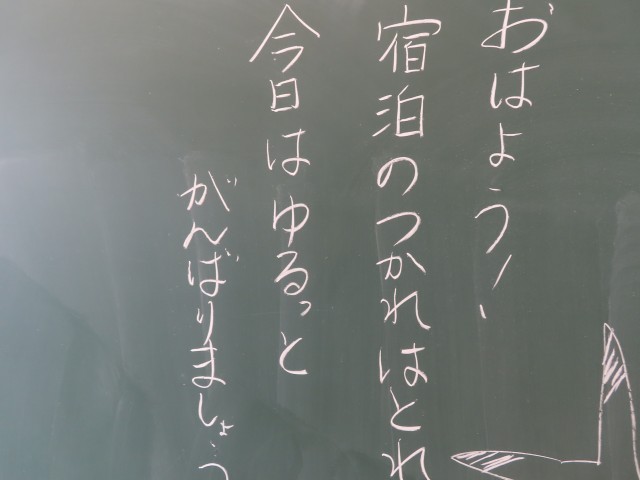 おはよう!
宿泊のつかれはとれ
今日はゆるっと
がんばりましょう